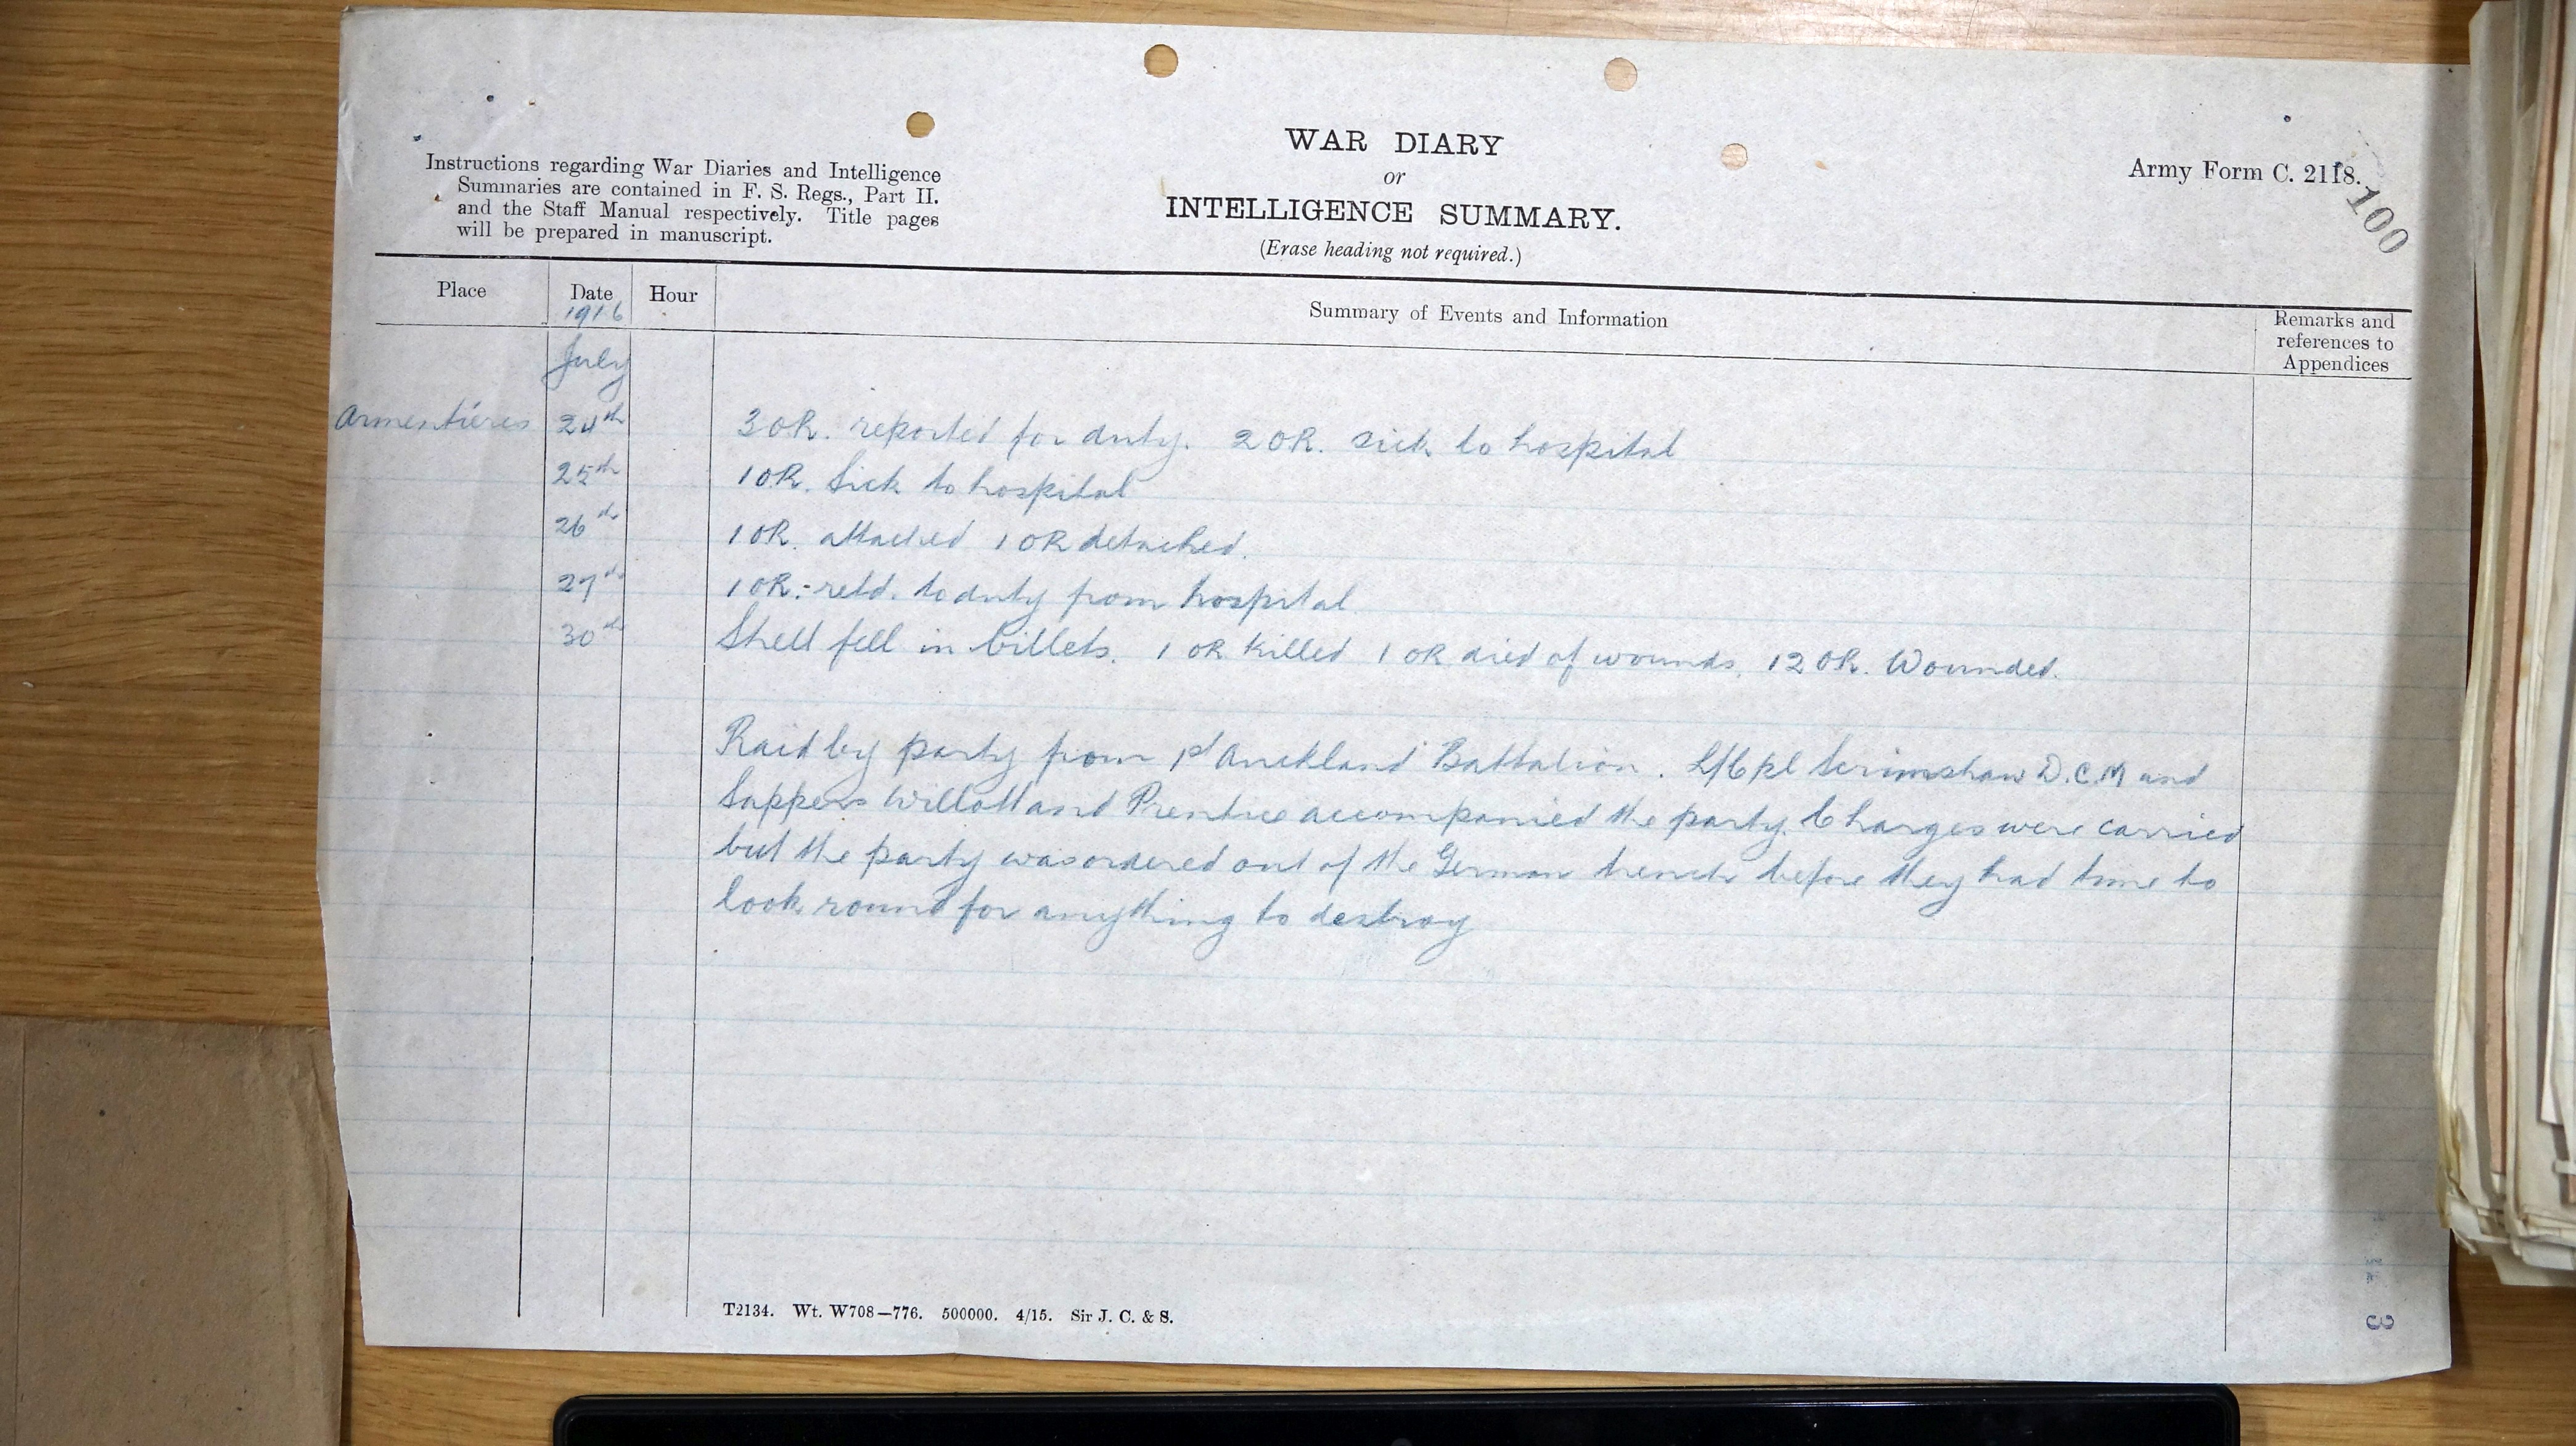 WAR DIARY
or
INTELLIGENCE SUMMARY.
(Erase heading not required.)
Instructions regarding War Diaries and Intelligence
Summaries are contained in F. S. Regs., Part II.
and the Staff Manual respectively. Title pages
will be prepared in manuscript.
Army Form C. 2118.
100
Place Date Hour Summary of Events and Information Remarks and references to Appendices
1916
July
Armentières 24th 3 OR. reported for duty. 2 OR. sick to hospital
25th 1 OR. Sick to hospital
26th 1 OR. attached 1 OR detached.
27th 1 OR:- retd. to duty from hospital
30th Shell fell in billets. 1 OR Killed 1 OR died of wounds. 12 OR. Wounded.
Raid by party from 1st Auckland Battalion. L/Cpl Scrimshaw D.C.M and
Sappers Willott and Prentice accompanied the party. Charges were carried
but the party was ordered out of the German trench before they had time to
look round for anything to destroy
T2134. Wt. W708—776. 500000. 4/15. Sir J. C. & S.
3